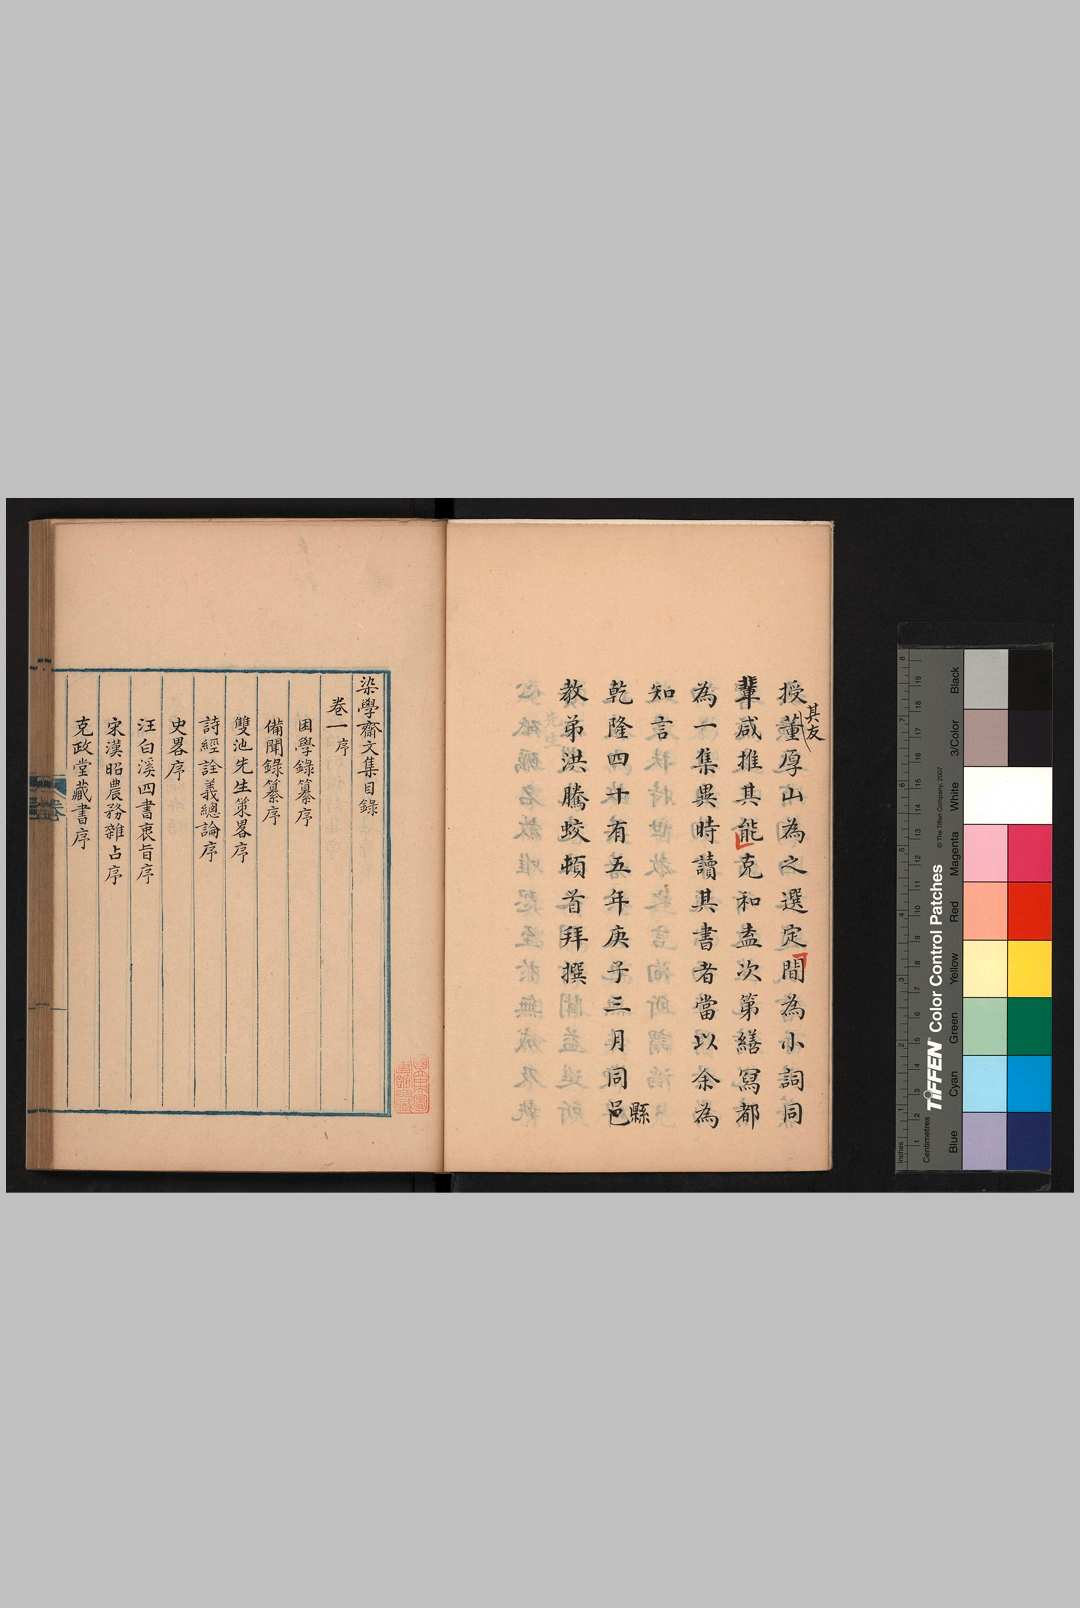 授其友董厚山為之選定間為小詞同
輩咸推其能克和盍次第繕寫都
為一集異時讀其書者當以余為
知言
乾隆四十有五年庚子三月同邑縣
教弟洪騰蛟頓首拜撰
染學齋文集目錄
卷一序
困學錄纂序
備聞錄纂序
雙池先生策畧序
詩經詮義總論序
史畧序
汪白溪四書衷旨序
宋漢昭農務雜占序
克政堂藏書序
Inches
Centimetres
TIFFEN Color Control Patches
© The Tiffen Company, 2007
Blue
Cyan
Green
Yellow
Red
Magenta
White
3/Color
Black